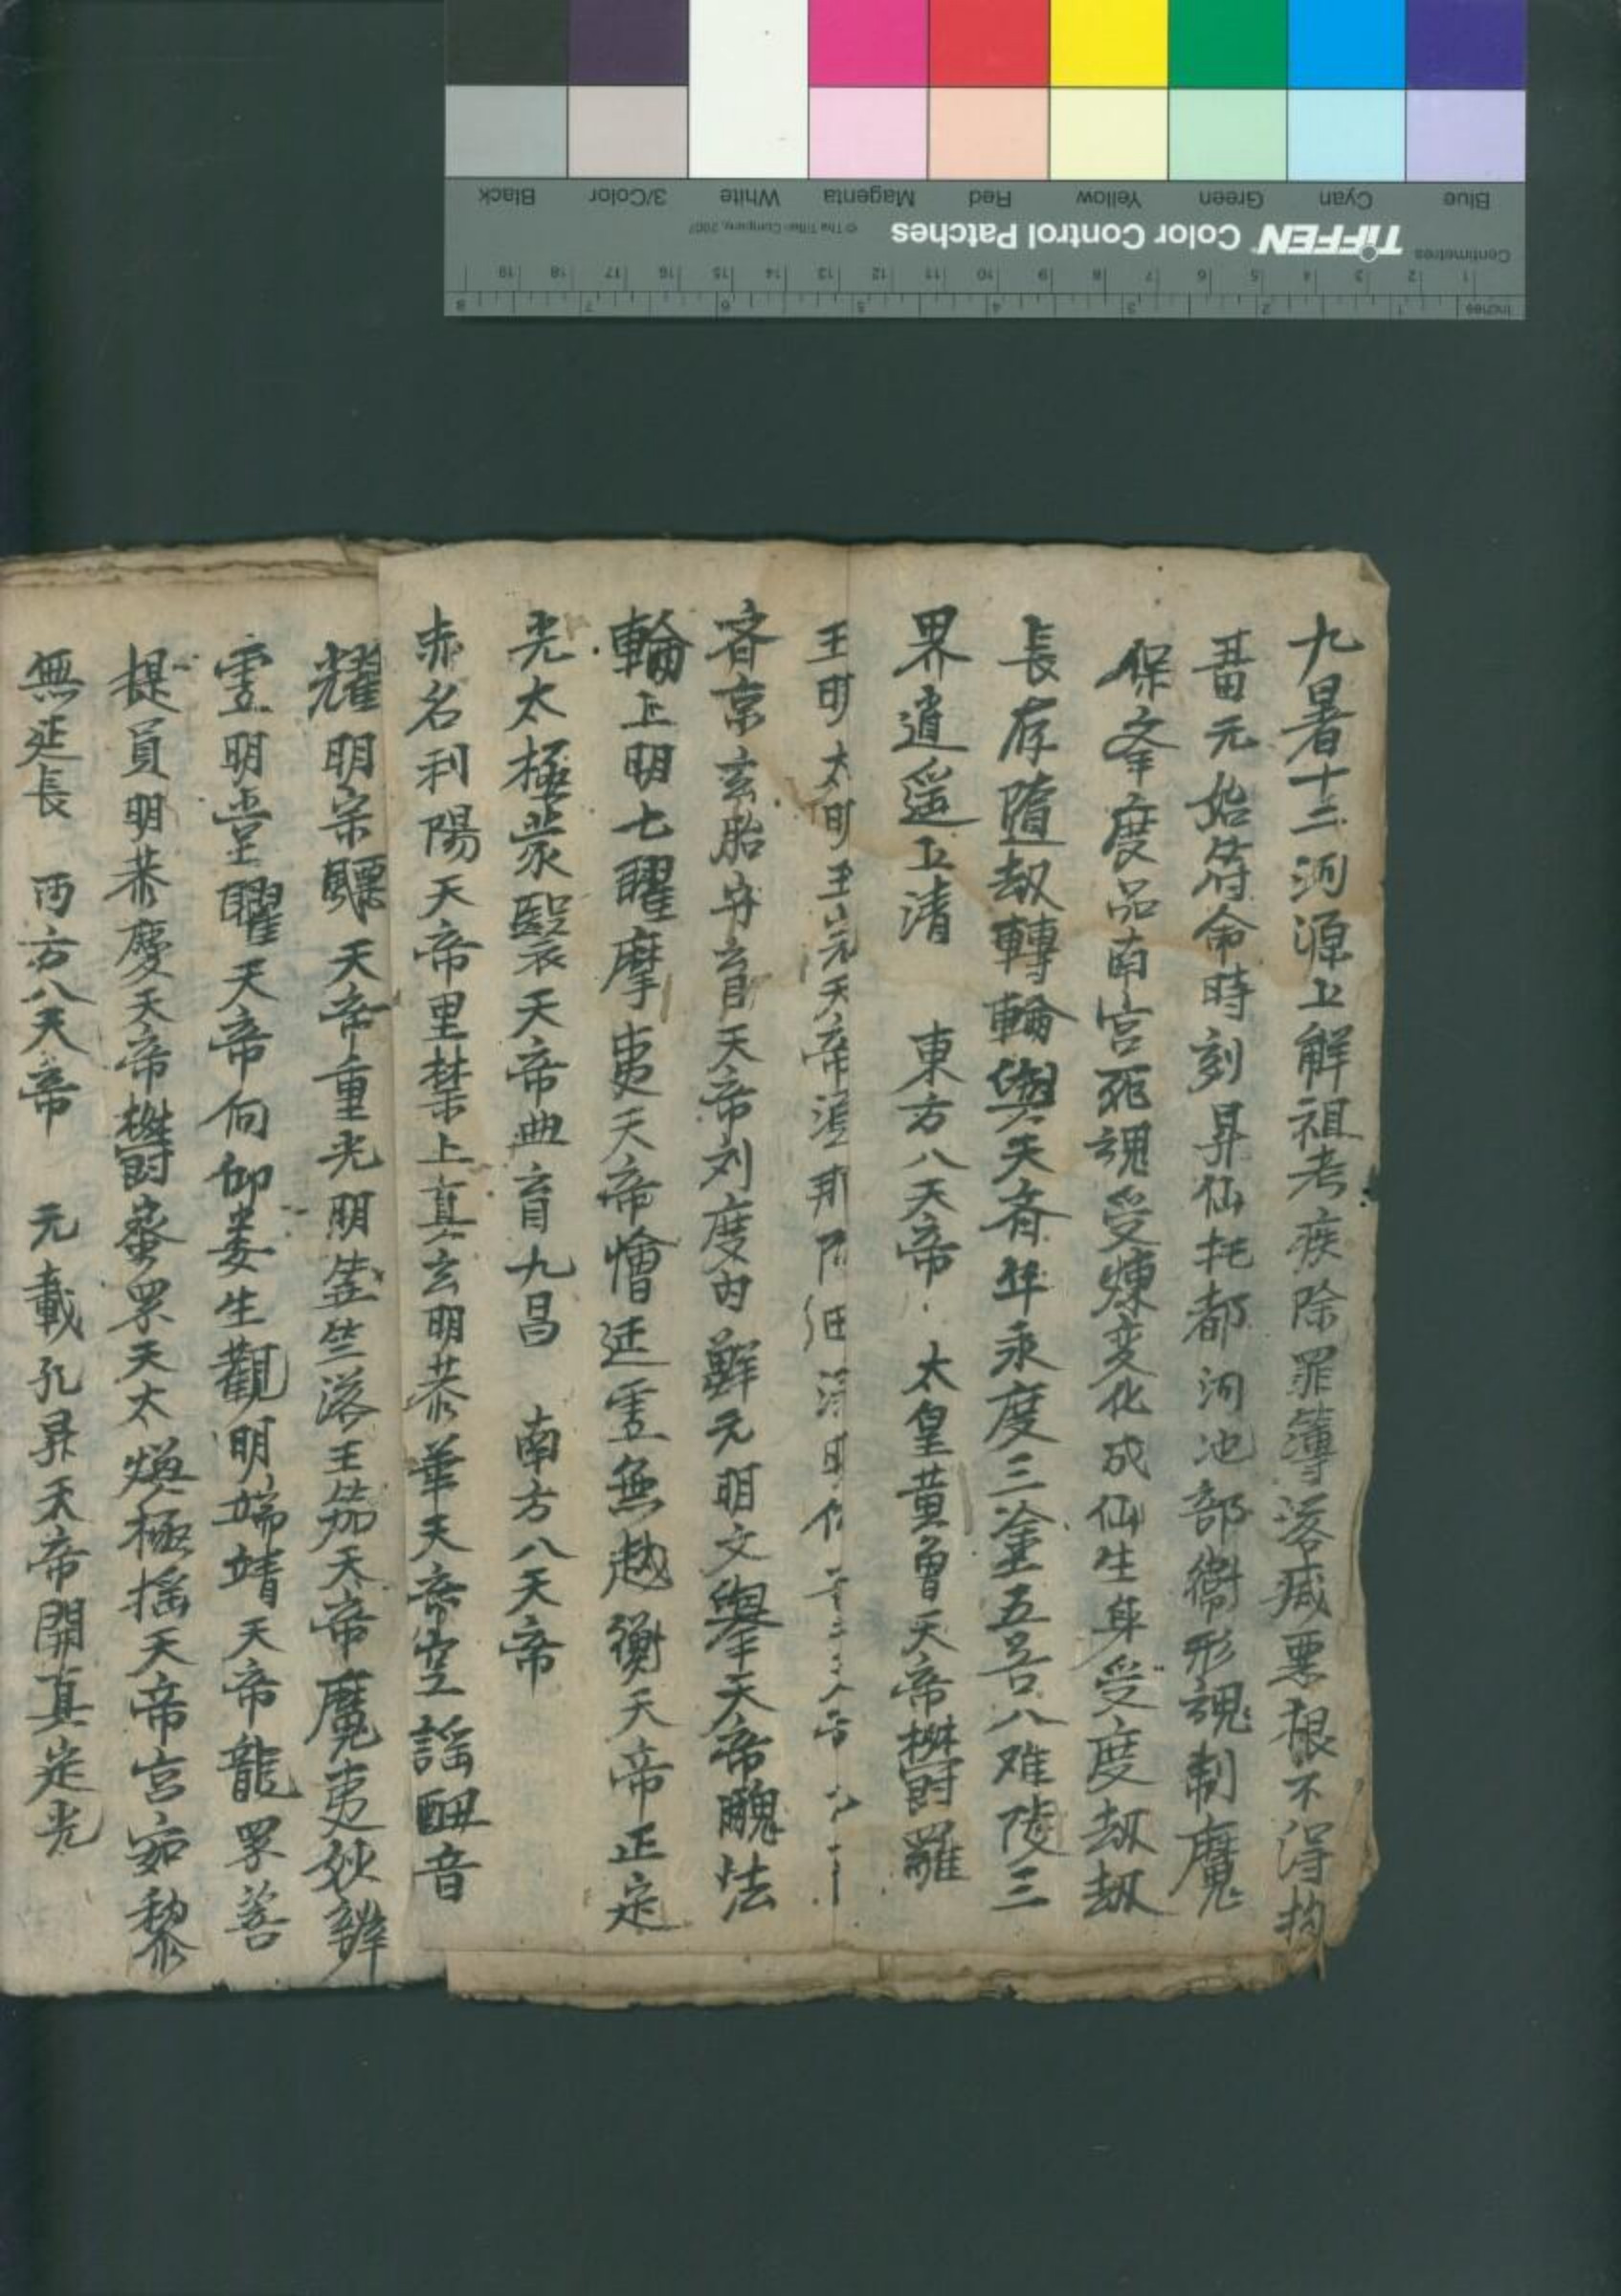 Blue Cyan Green Yellow Red Magenta White 3/Color Black
TIFFEN Color Control Patches © The Tiffen Company, 2007
Centimetres
Inches
九暑十二河源上解祖考疾除罪簿落滅惡根不得拘
畨元始符命時刻昇仙扥都河池部衛形魂制魔
保夆度品南宮死魂受煉変化成仙生身受度刼刼
長存隨刼轉輪與天斉年永度三塗五苦八难陵三
界逍遥上清 東方八天帝 太皇黄曾天帝欝羅
斉京玄胎平育天帝刘度内鮮元明文舉天帝醜法
輪上明七曜摩夷天帝憎延霊無越衡天帝正定
光太極蒙翳天帝曲育九昌 南方八天帝
赤名利陽天帝里禁上真玄明恭華天帝空謡醜音
耀明宗飄天帝重光明笪竺落王笳天帝魔夷妙辯
霊明堂曜天帝向仰娄生觀明端靖天帝龍罗菩
提員明恭慶天帝欝蚕累天太煥極揺天帝宫宛黎
無延長 西方八天帝 元載孔昇天帝開真定光